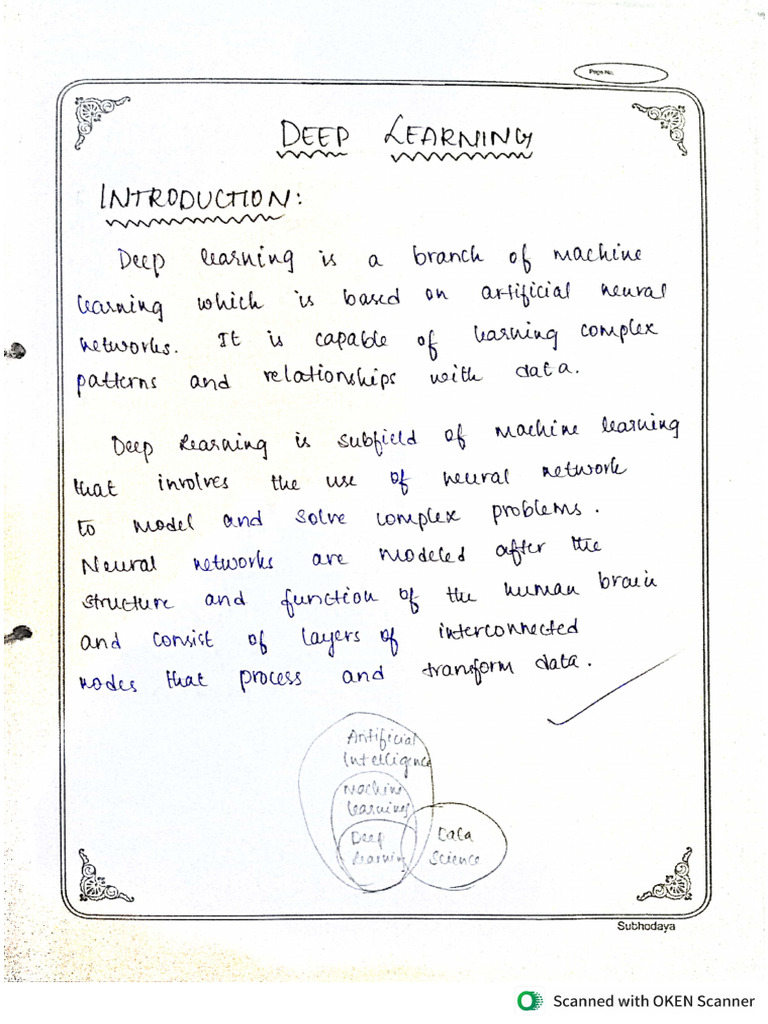 Page No.
DEEP LEARNING
INTRODUCTION:
Deep learning is a branch of machine
learning which is based on artificial neural
networks. It is capable of learning complex
patterns and relationships with data.
Deep Learning is subfield of machine learning
that involves the use of neural network
to model and solve complex problems.
Neural networks are modeled after the
structure and function of the human brain
and consist of layers of interconnected
nodes that process and transform data.
Artificial
Intelligence
Machine
Learnings
Deep
Learning
Data
Science
Subhodaya
Scanned with OKEN Scanner